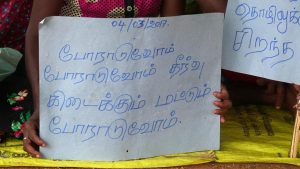 04/03/2017.
போராடுவோம்
போராடுவோம் தீர்வு
கிடைக்கும் மட்டும்
போராடுவோம்.
தொழிலுக்
சிறந்த